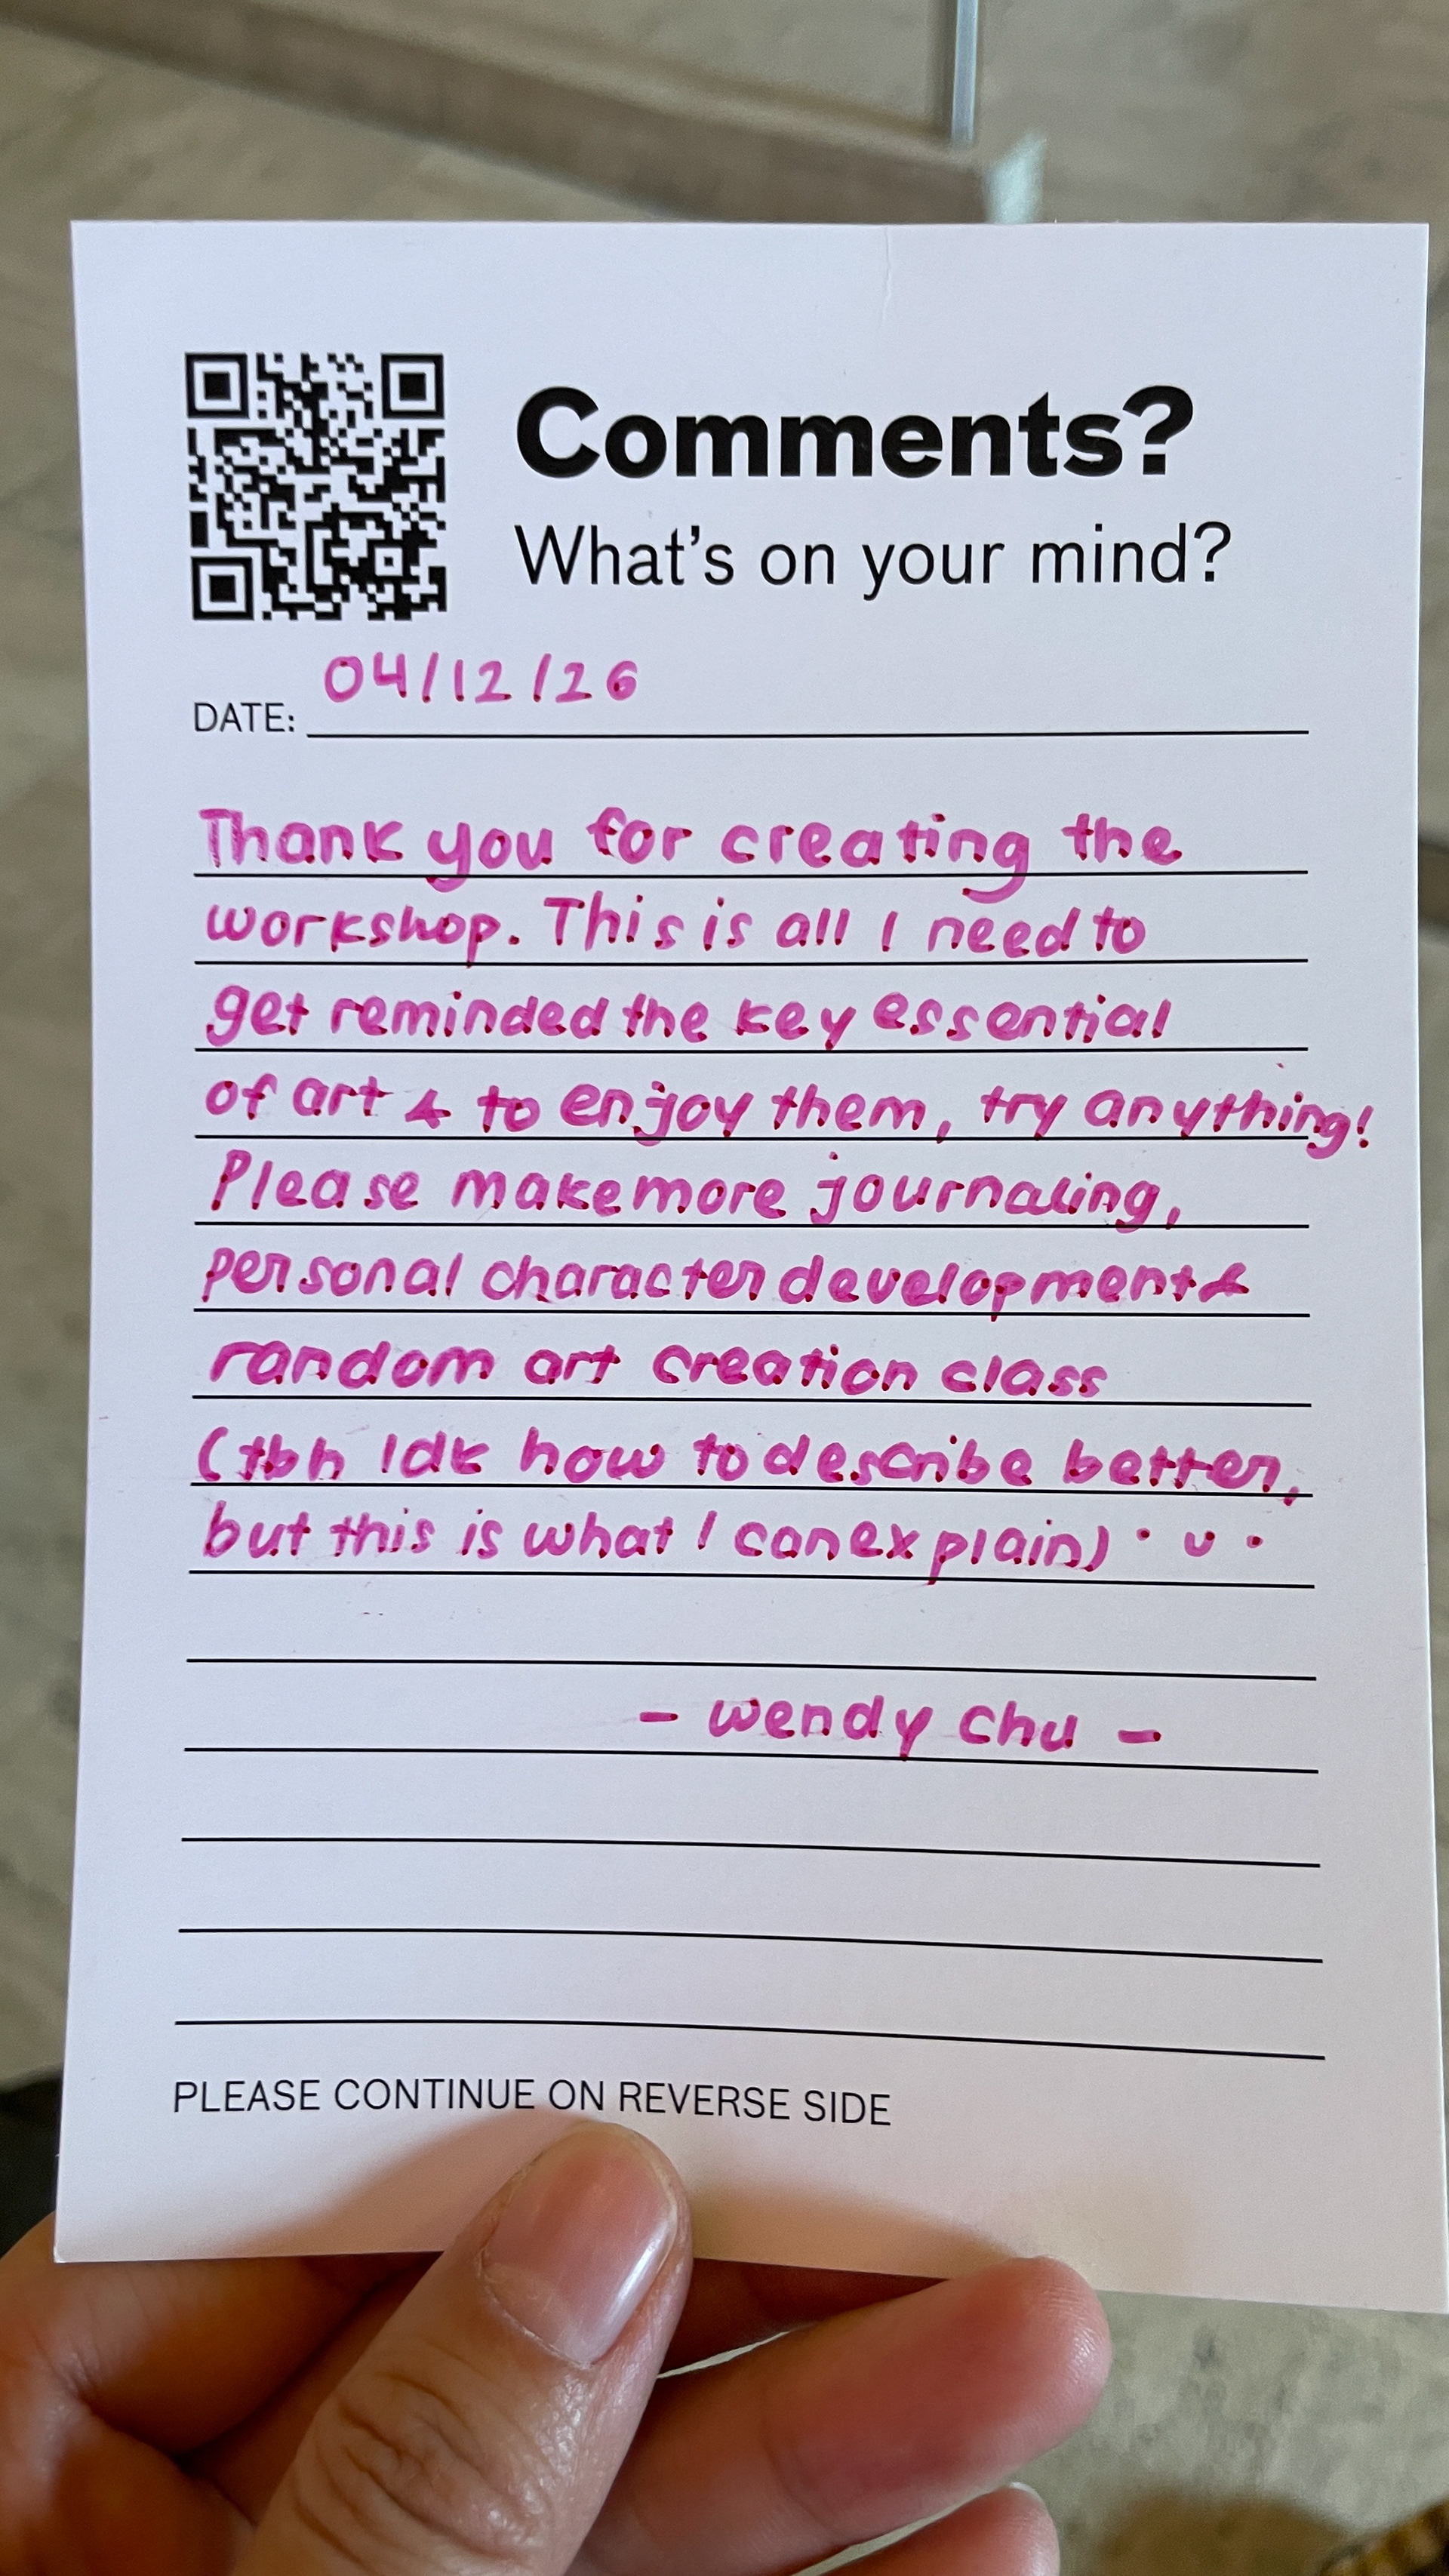 Comments?
What's on your mind?
DATE: 04/12/26
Thank you for creating the
workshop. This is all I need to
get reminded the key essential
of art & to enjoy them, try anything!
Please make more journaling,
personal character development &
random art creation class
(tbh Idk how to describe better,
but this is what I can explain) • u •
- wendy chu -
PLEASE CONTINUE ON REVERSE SIDE